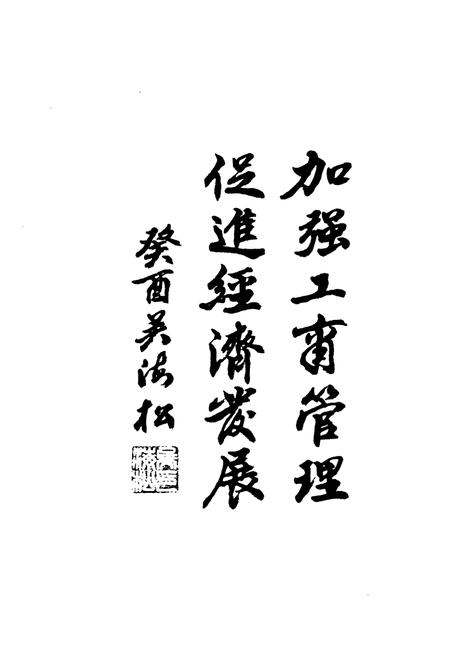 加强工商管理
促進經濟發展
癸酉吴海松